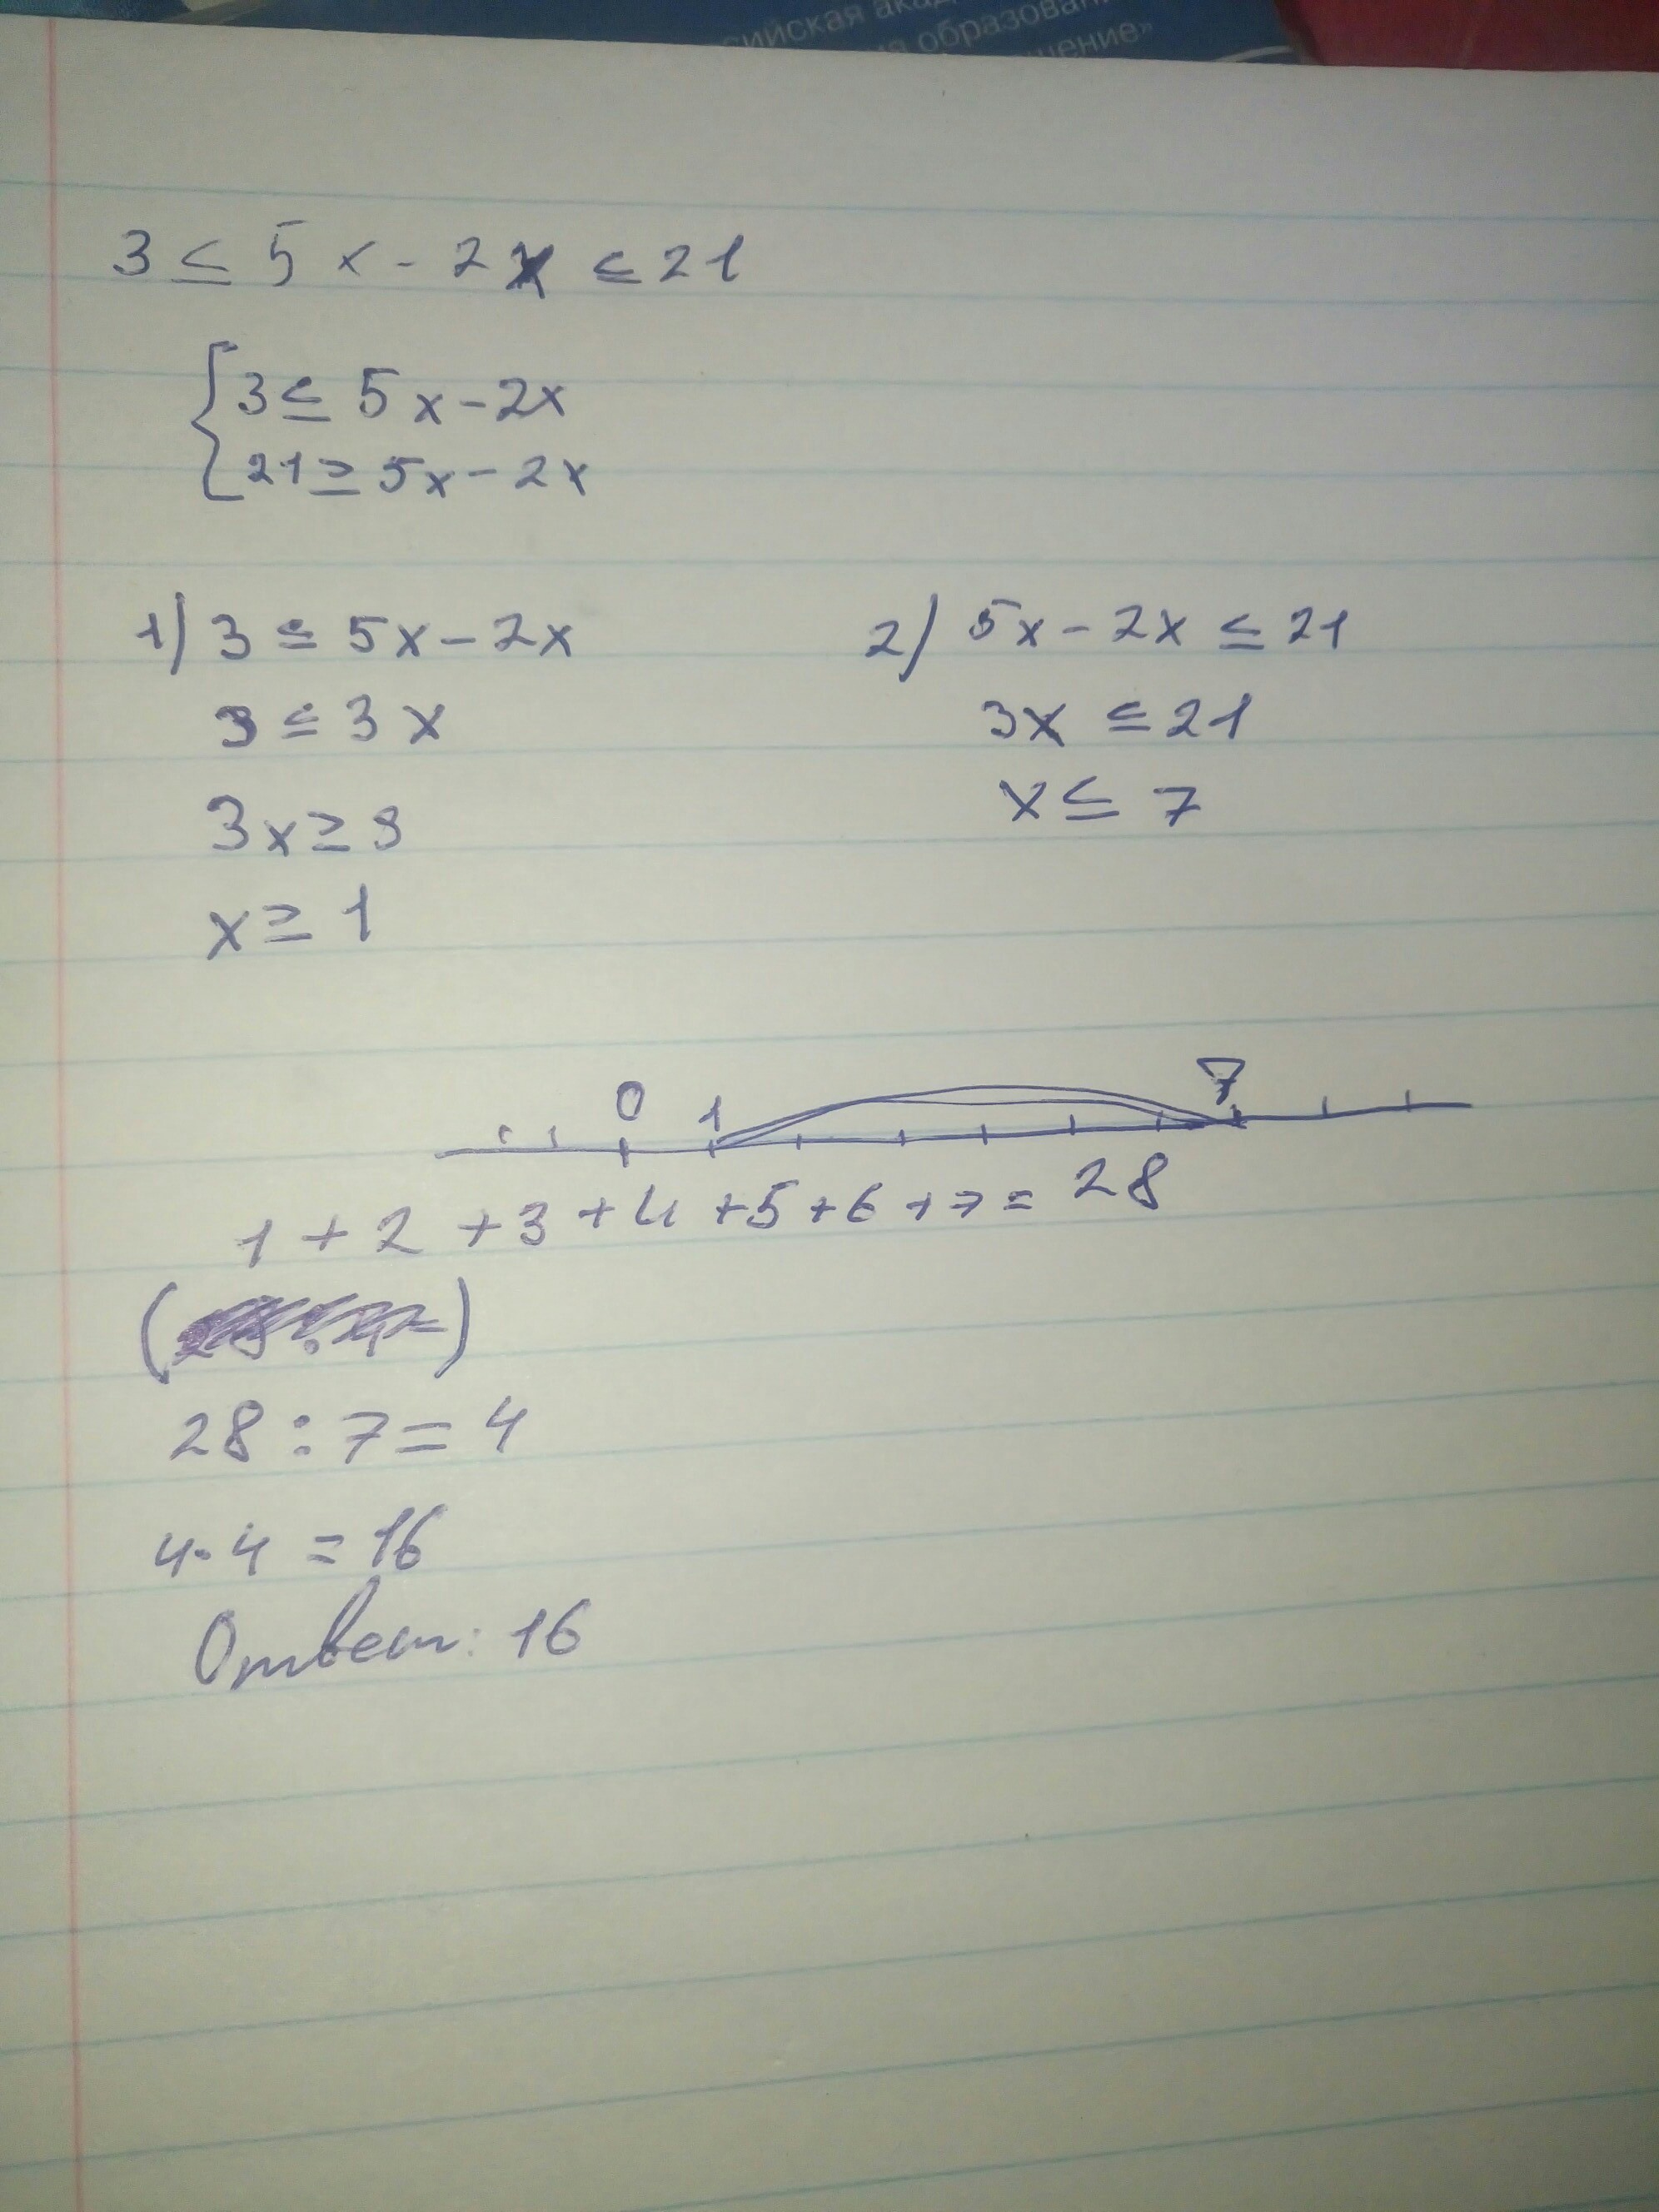 образован
3 ≤ 5x - 2x ≤ 21
3 ≤ 5x - 2x
21 ≥ 5x - 2x
1) 3 ≤ 5x - 2x
3 ≤ 3x
3x ≥ 3
x ≥ 1
2) 5x - 2x ≤ 21
3x ≤ 21
x ≤ 7
0 1 7
1 + 2 + 3 + 4 + 5 + 6 + 7 = 28
28 : 7 = 4
4 · 4 = 16
Ответ: 16